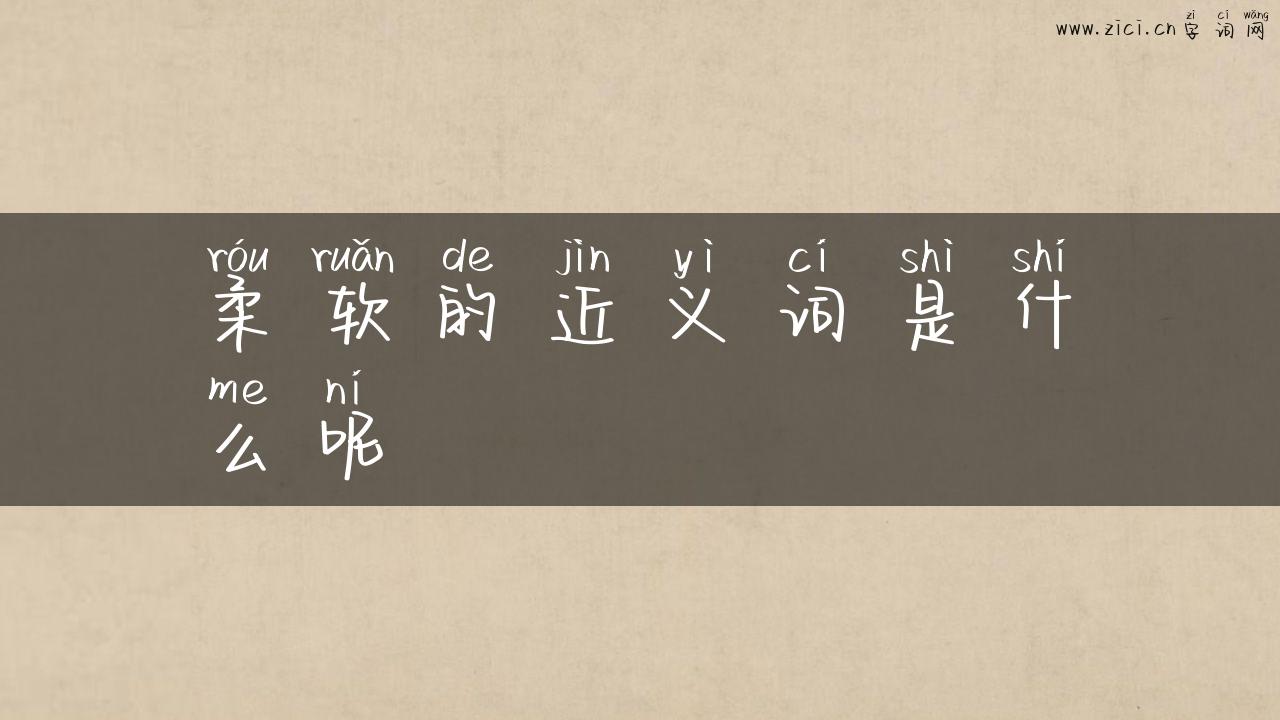 zì cí wǎng
www.zici.cn 字词网
róu ruǎn de jìn yì cí shì shí
柔软的近义词是什
me ní
么呢